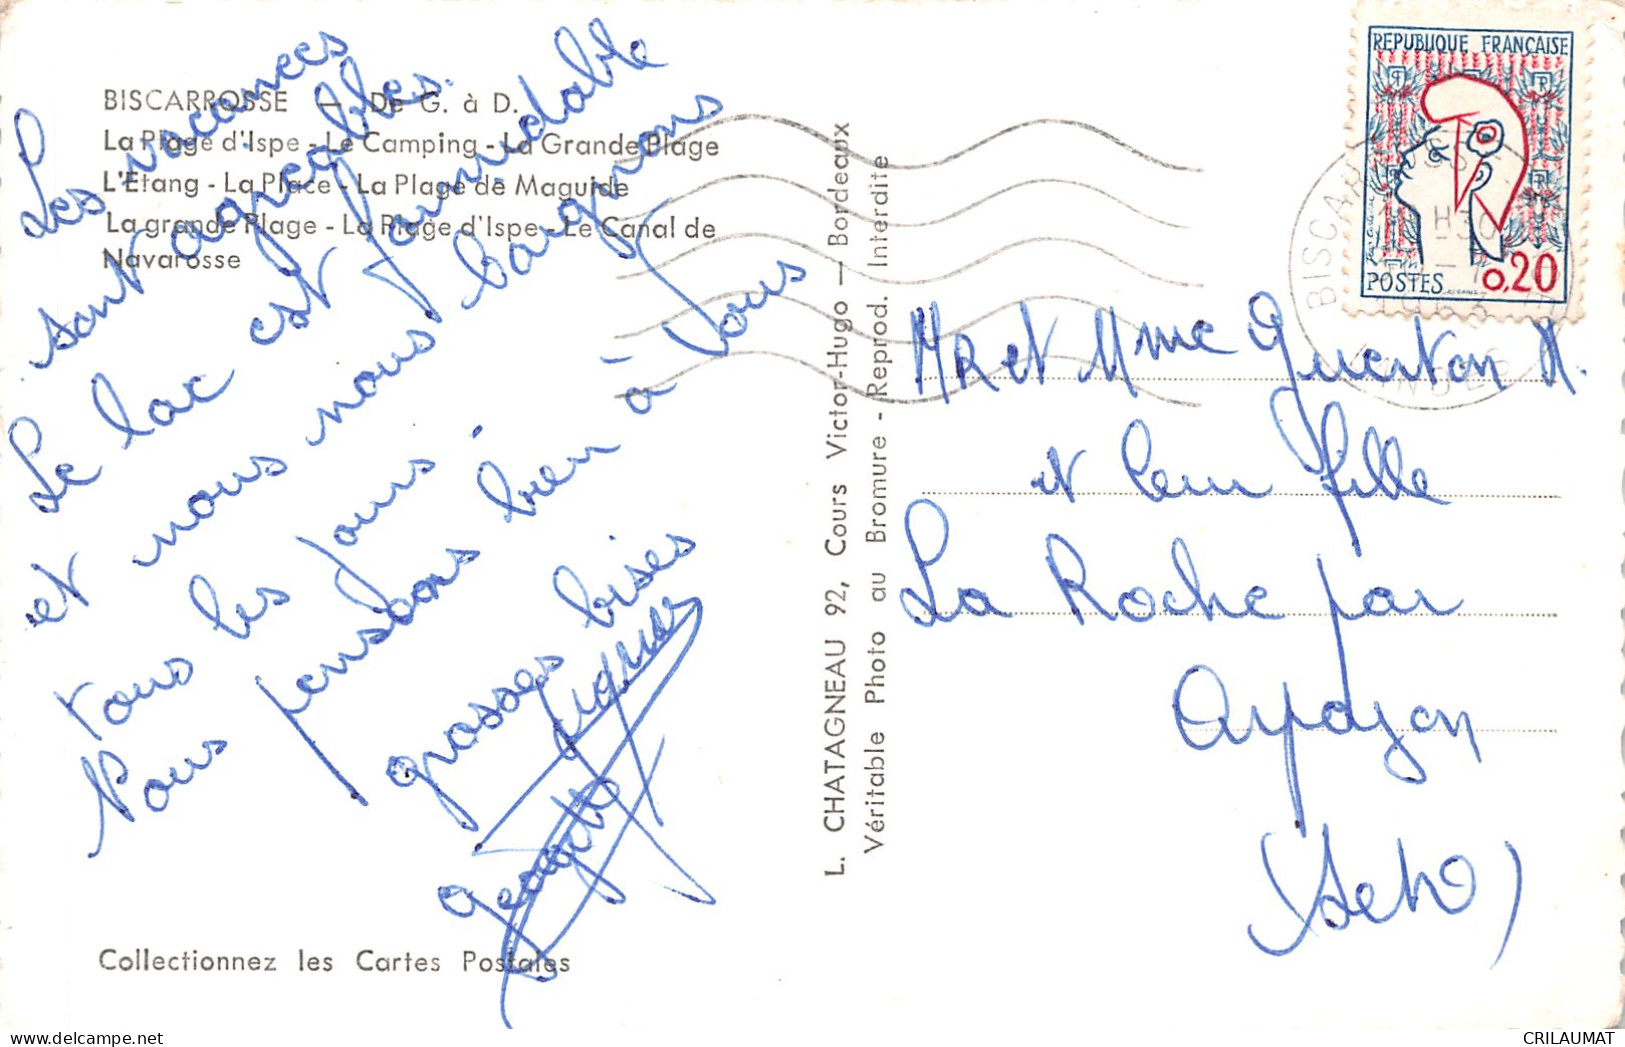 BISCARROSSE — De G. à D.
La Plage d'Ispe - Le Camping - La Grande Plage
L'Etang - La Place - La Plage de Maguide
La grande Plage - La Plage d'Ispe - Le Canal de
Navarosse
Les vacances
sont agréables.
Le lac est formidable
et nous nous baignons
tous les jours.
Nous pensons bien à vous
grosses bises
Georgette
Collectionnez les Cartes Postales
L. CHATAGNEAU 92, Cours Victor-Hugo — Bordeaux
Véritable Photo au Bromure - Reprod. Interdite
REPUBLIQUE FRANÇAISE
POSTES 0,20
MR et Mme Querton R.
et leur fille
La Roche par
Arpajon
(Set O)
CRILAUMAT